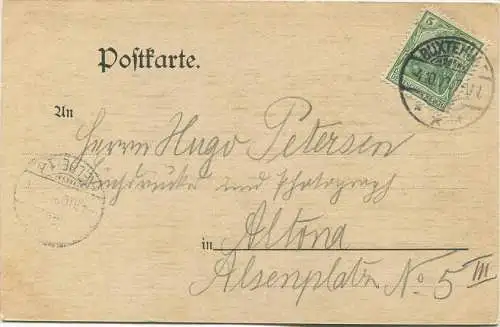 Postkarte.
5
BUXTEHUDE
An
Herrn Hugo Petersen
Buchdrucker und Photograph
in Altona
Alsenplatz No 5 III